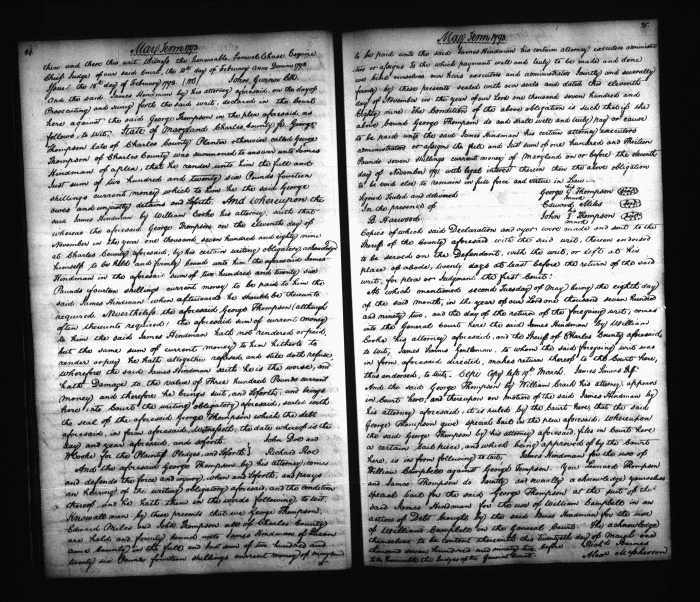 May Term 1792
then and there this writ. Witness the honorable Samuel Chase Esquire
Chief Judge of our said Court, the 11th day of February Anno Domini 1792
Issued the 15th day of February 1792. John Gwinn Clk.
And the said James Hindman by his attorney aforesaid, on the day of
Prosecuting and suing forth the said writ, declared in the Court
here against the said George Thompson in the plea aforesaid as
follows, to wit, State of Maryland Charles County sc. George
Thompson late of Charles County Planter otherwise called George
Thompson of Charles County was summoned to answer unto James
Hindman of a plea, that he render unto him the full and
Just sum of two Hundred and twenty six Pounds fourteen
shillings current money which to him he the said George
owes and unjustly detains and soforth. And whereupon the
said James Hindman by William Cooke his attorney saith that
whereas the aforesaid George Thompson on the eleventh day of
November in the year one thousand, seven hundred and eighty nine
at Charles County aforesaid, by his certain writing obligatory, acknowledged
himself to be held and firmly bound unto him the aforesaid James
Hindman in the aforesaid sum of two hundred and twenty six
Pounds fourteen shillings current money to be paid to him the
said James Hindman when afterwards he should be thereunto
required. Nevertheless the aforesaid George Thompson (although
often thereunto required) the aforesaid sum of current money
to him the said James Hindman hath not rendered or paid,
but the same sum of current money to him hitherto to
render or pay he hath altogether refused, and still doth refuse,
Wherefore the said James Hindman saith he is the worse, and
hath Damage to the value of Three Hundred Pounds current
money and therefore he brings suit, and soforth, and brings
here into Court the writing obligatory aforesaid, sealed with
the seal of the aforesaid George Thompson which the debt
aforesaid, in form aforesaid, witnesseth, the date whereof is the
day and year aforesaid and soforth. John Doe and
W Cooke for the Plaintiff Pledges, and soforth } Richard Roe
And the aforesaid George Thompson by his attorney, comes
and defends the force and injury, when and soforth, and prays
an hearing of the writing obligatory aforesaid, and the condition
thereof, and he hath them in the words following to wit,
Know all men by these presents that we George Thompson,
Edward Miles and John Thompson all of Charles County
are held and firmly bound unto James Hindman of Queen
anns County in the full and Just sum of two hundred and
twenty six Pounds fourteen shillings current money of maryland
May Term 1792
to be paid unto the said James Hindman his certain attorney executors administra
tors or assigns to the which payment well and truly to be made and done
we bind ourselves our heirs executors and administrators Jointly and severally
firmly by these presents sealed with our seals and dated this eleventh
day of November in the year of our Lord one thousand seven hundred and
Eighty nine. The Condition of the above obligation is such that if the
above bound George Thompson do and shall well and truly pay or cause
to be paid unto the said James Hindman his certain attorney executors
administrators or assigns the full and Just sum of one hundred and thirteen
Pounds seven shillings current money of Maryland on or before the eleventh
day of November 1791 with legal interest thereon then the above obligation
to be void else to remain in full force and virtue in Law.
Signed Sealed and delivered George Thompson
mark
In the presence of Edward Miles
B. Harwood John Thompson
mark
Copies of which said Declaration and oyer were made and sent to the
Sheriff of the County aforesaid with the said writ, thereon endorsed
to be served on the Defendant, with the writ, or left at his
place of abode, twenty days at least before the return of the said
writ, for plea or Judgment the first Court.
At which mentioned second Tuesday of May being the eighth day
of the said month, in the year of our Lord one thousand seven hundred
and ninety two, and the day of the return of the foregoing writ, comes
into the General Court here the said James Hindman by William
Cooke his attorney aforesaid, and the Sheriff of Charles County aforesaid,
to wit, James Gentleman, to whom the said foregoing writ was
in form aforesaid directed, makes return thereof to the Court here,
thus endorsed, to wit. Copy left 17th March. James Shff.
And the said George Thompson by William his attorney, appears
in Court here, and thereupon on motion of the said James Hindman by
his attorney aforesaid, it is ruled by the Court here that the said
George Thompson give special bail in the plea aforesaid. Whereupon
the said George Thompson by his attorney aforesaid, files in Court here
a certain bail piece, and which being approved of by the Court
here, is in form following to wit, James Hindman for the use of
William Campbell against George Thompson. You Leonard Thompson
and James Thompson do Jointly and severally acknowledge yourselves
special bail for the said George Thompson at the suit of the
said James Hindman for the use of William Campbell in an
action of Debt brought by the said James Hindman for the use
of William Campbell in the General Court. The acknowledge
themselves to be content therewith this twentyth day of March one
thousand seven hundred and ninety two before Richd Barnes
To the Honorable the Judges of the General Court. Alexr McPherson